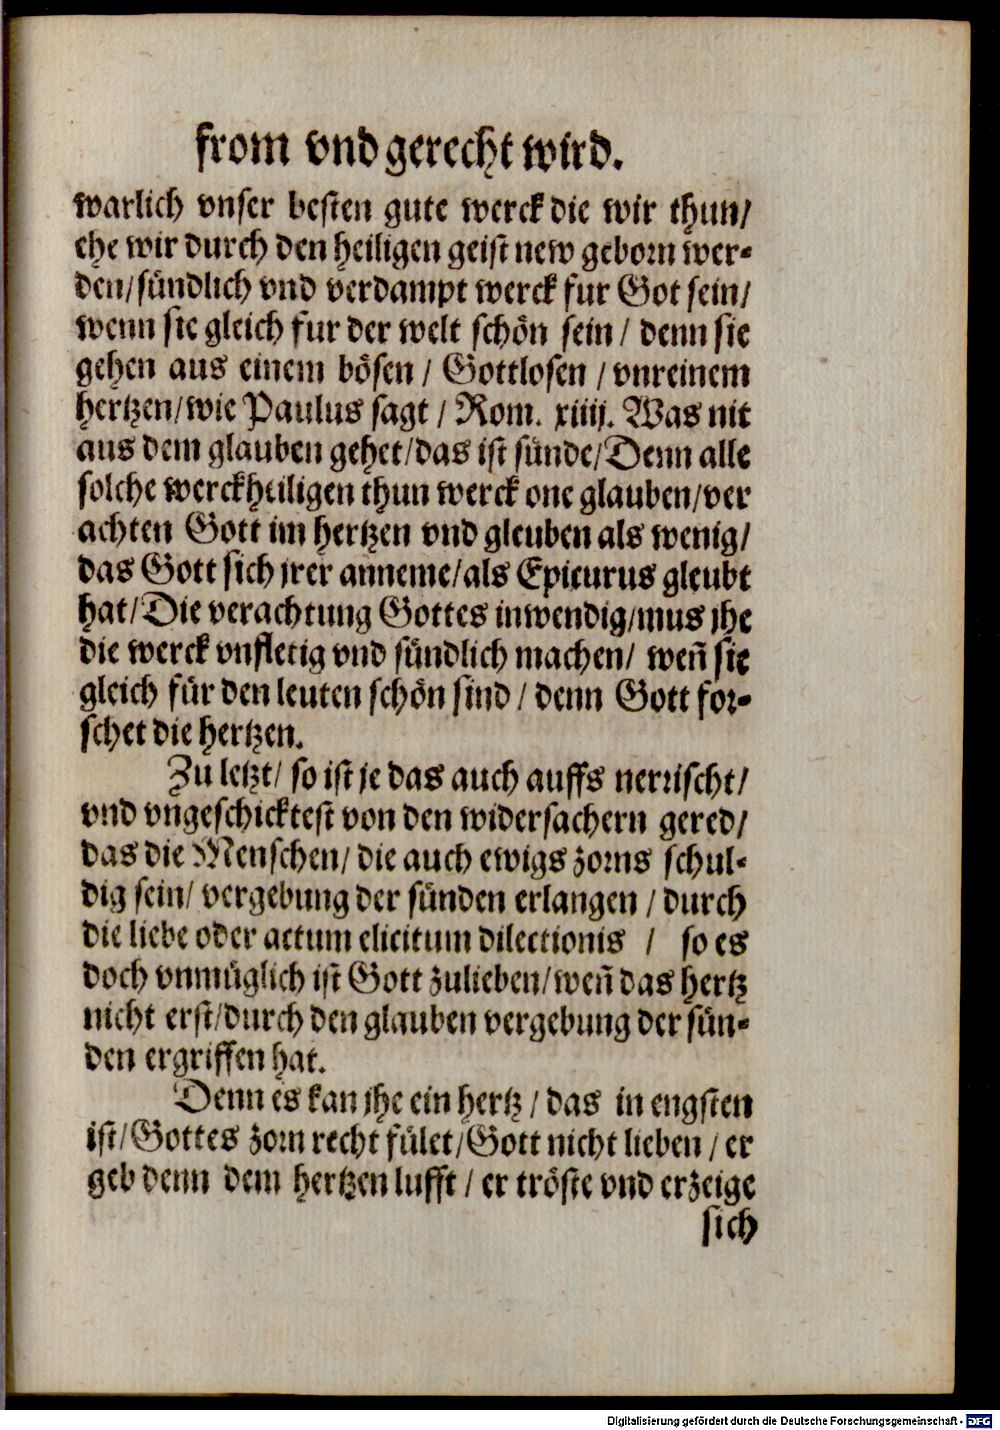 from vnd gerecht wird.
warlich vnser besten gute werck die wir thun/
ehe wir durch den heiligen geist new geborn wer-
den/sündlich vnd verdampt werck fur Got sein/
wenn sie gleich fur der welt schön sein / denn sie
gehen aus einem bösen / Gottlosen / vnreinem
hertzen/wie Paulus sagt / Rom. xiiij. Was nit
aus dem glauben gehet/das ist sünde/Denn alle
solche werckheiligen thun werck one glauben/ver
achten Gott im hertzen vnd gleuben als wenig/
das Gott sich jrer anneme/als Epicurus gleubt
hat/Die verachtung Gottes inwendig/mus jhe
die werck vnfletig vnd sündlich machen/ weñ sie
gleich für den leuten schön sind / denn Gott for-
schet die hertzen.
Zu letzt/ so ist je das auch auffs nerrischt/
vnd vngeschicktest von den widersachern gered/
das die Menschen/ die auch ewigs zorns schul-
dig sein/ vergebung der sünden erlangen / durch
die liebe oder actum elicitum dilectionis / so es
doch vnmüglich ist Gott zulieben/weñ das hertz
nicht erst/durch den glauben vergebung der sün-
den ergriffen hat.
Denn es kan jhe ein hertz / das in engsten
ist/Gottes zorn recht fület/Gott nicht lieben / er
geb denn dem hertzen lufft / er tröste vnd erzeige
sich
Digitalisierung gefördert durch die Deutsche Forschungsgemeinschaft - DFG